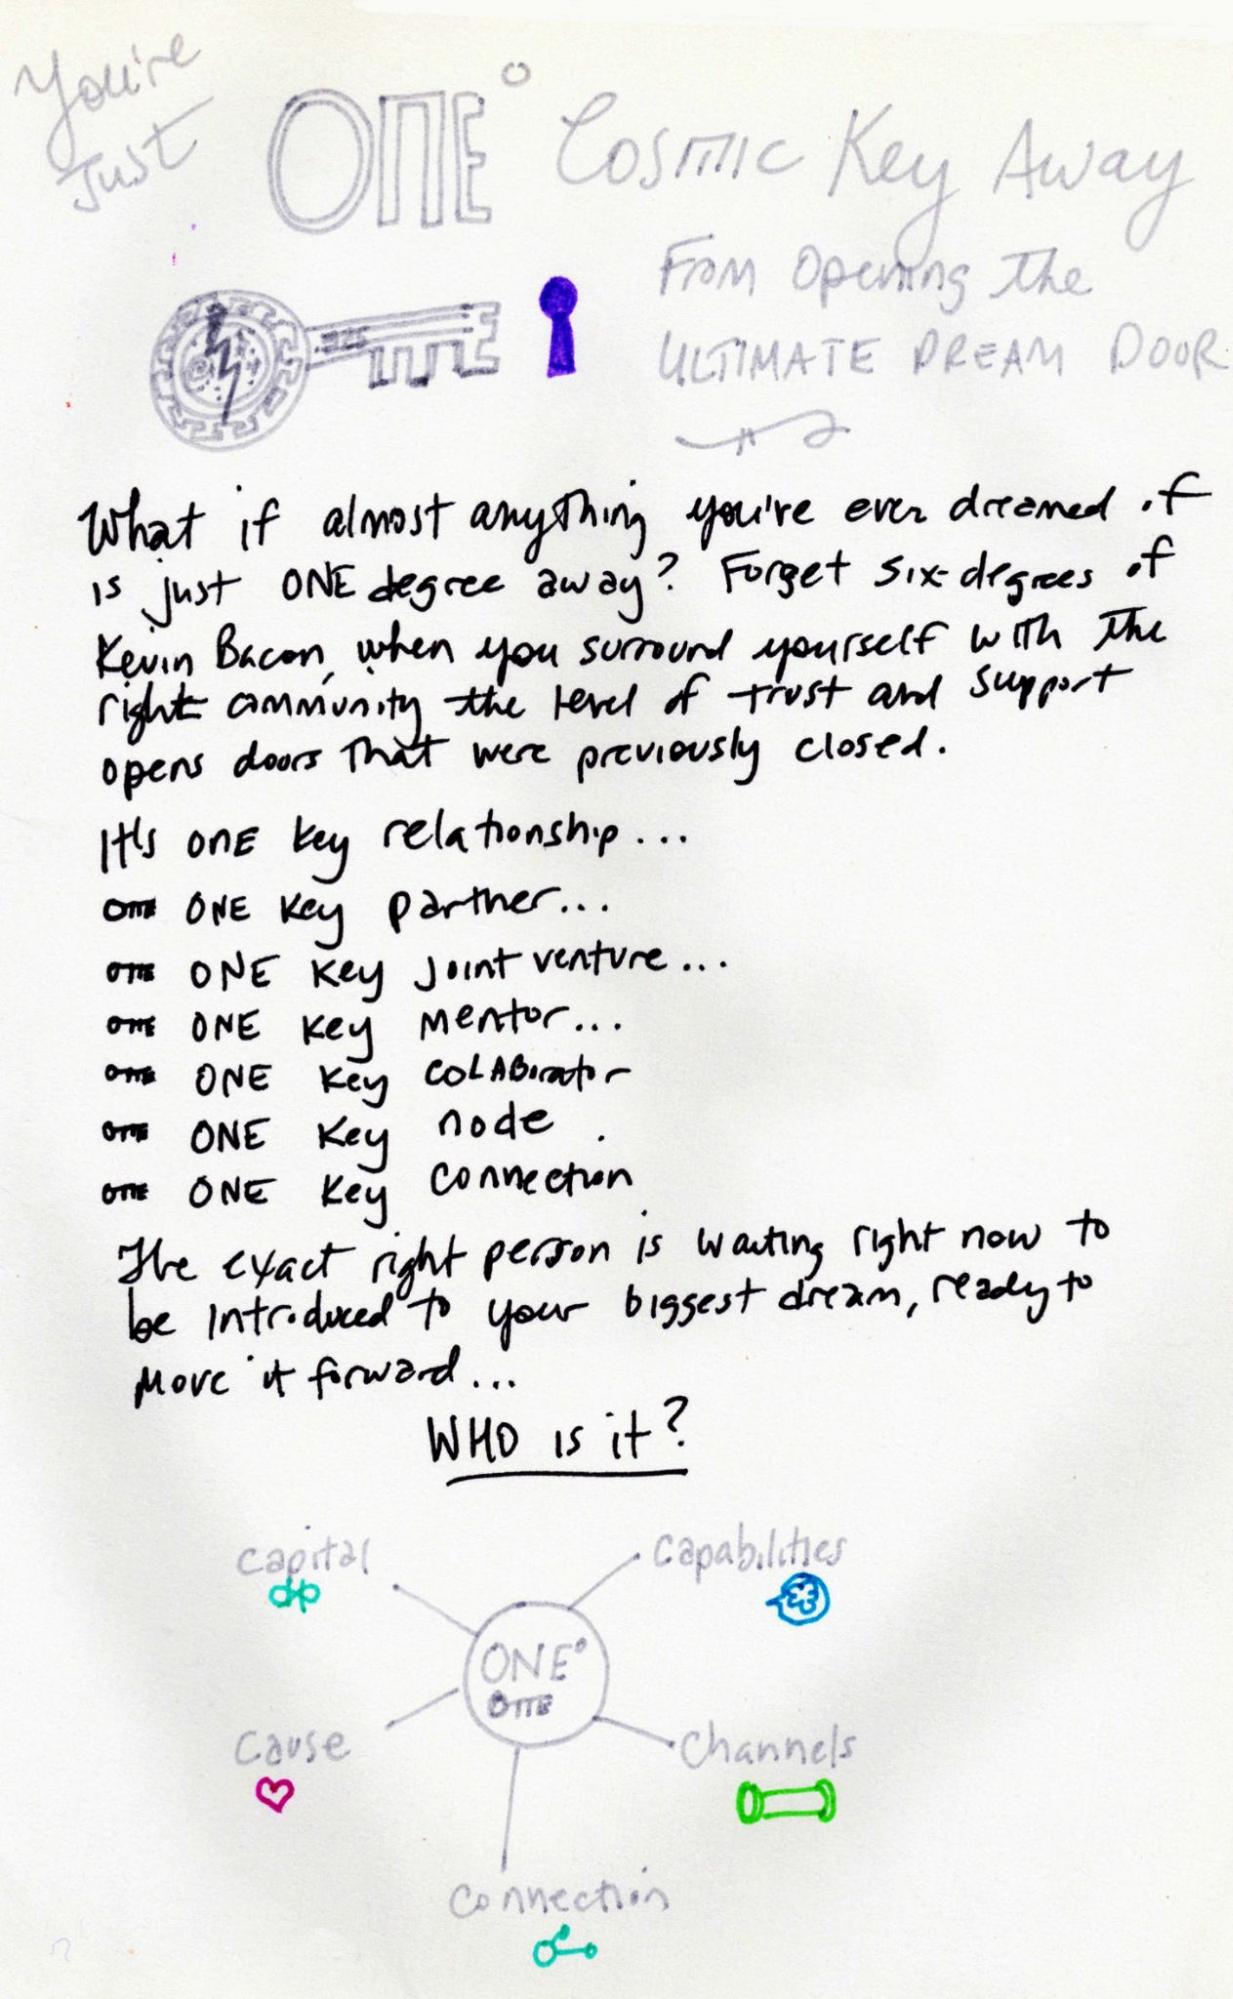 You're
Just
ONE° Cosmic Key Away
From Opening the
ULTIMATE DREAM DOOR
What if almost anything you're ever dreamed of
is just ONE degree away? Forget six-degrees of
Kevin Bacon, when you surround yourself with the
right community the level of trust and support
opens doors that were previously closed.
It's ONE key relationship...
ONE key partner...
ONE key Joint venture...
ONE key mentor...
ONE key COLABorator
ONE key node
ONE key connection
The exact right person is waiting right now to
be introduced to your biggest dream, ready to
move it forward...
WHO is it?
Capital
Capabilities
ONE°
Cause
Channels
Connection